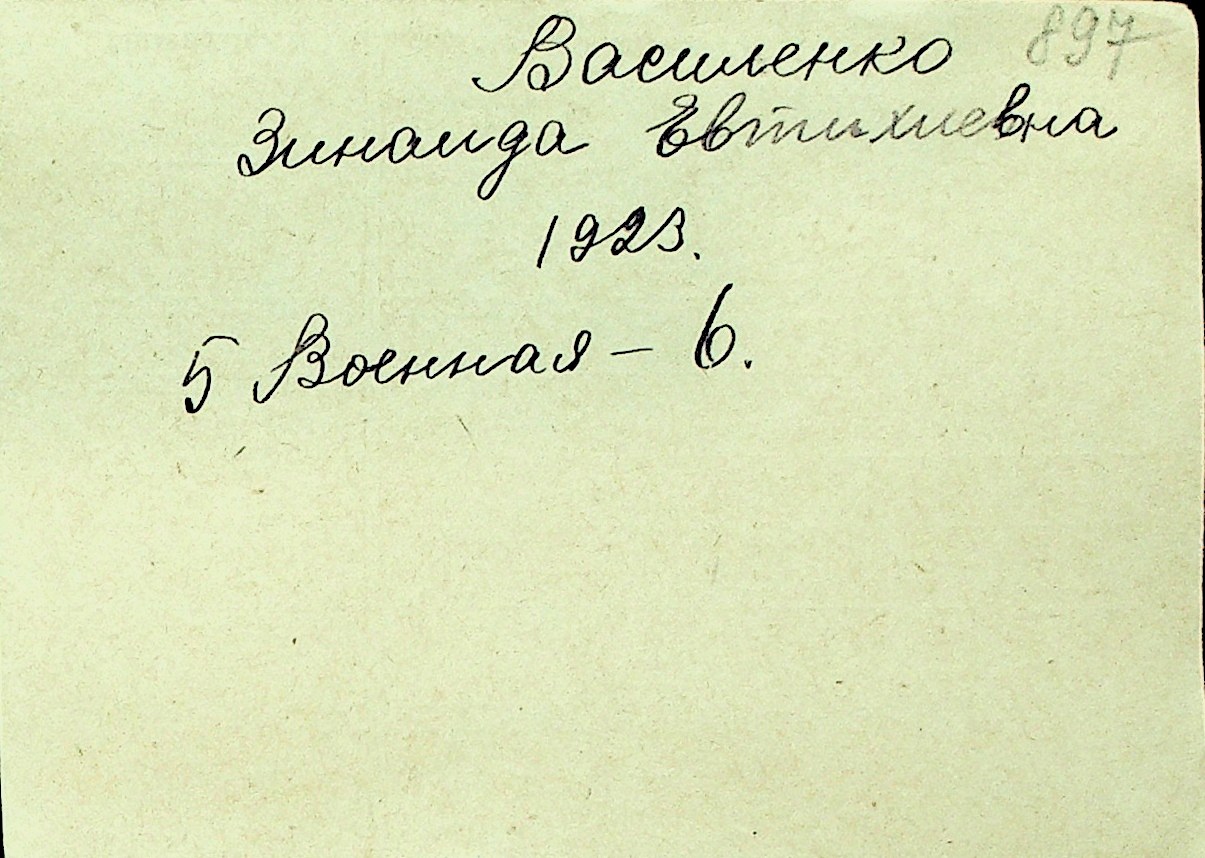 897
Василенко
Зинаида Евтихиевна
1923.
5 Военная – 6.